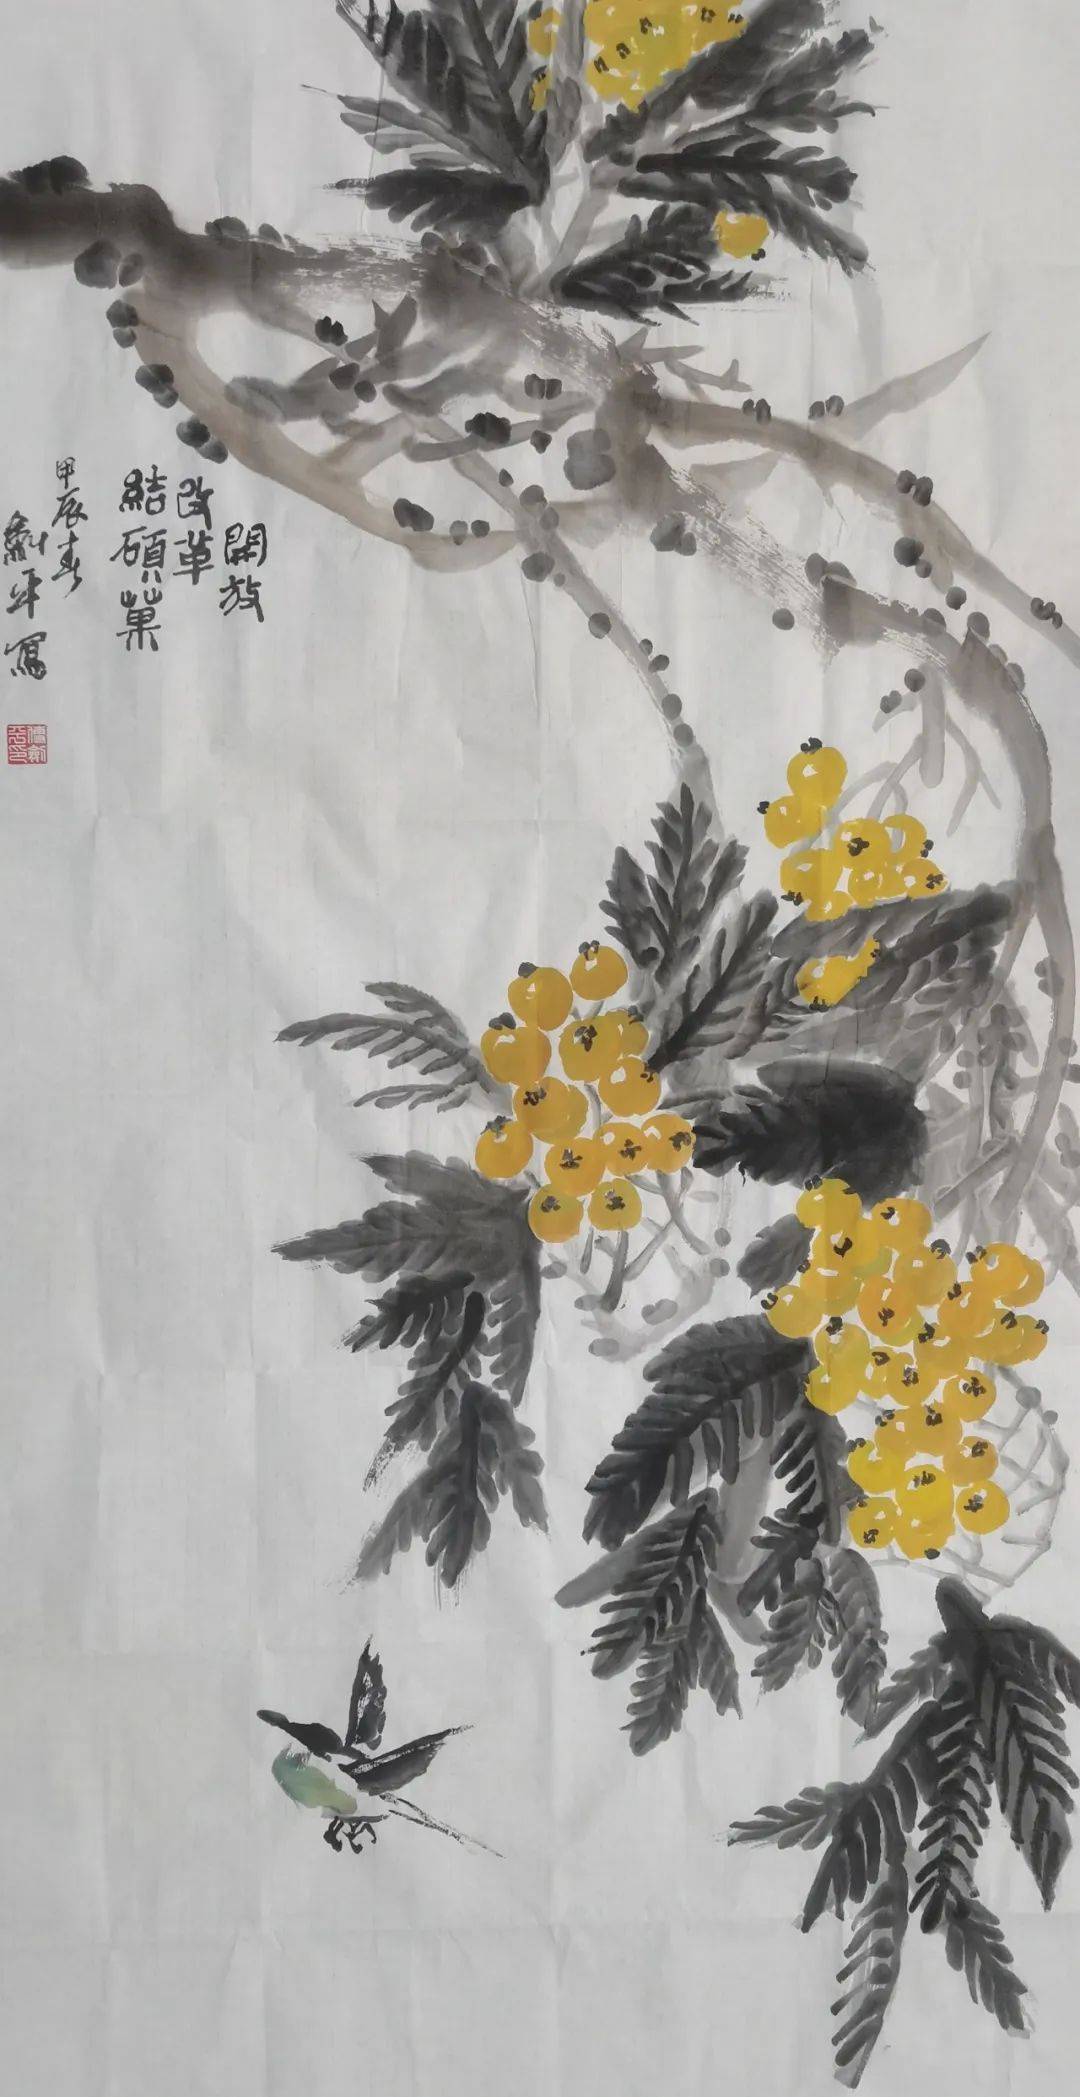 開放
改革
結碩菓
甲辰春
劍平寫